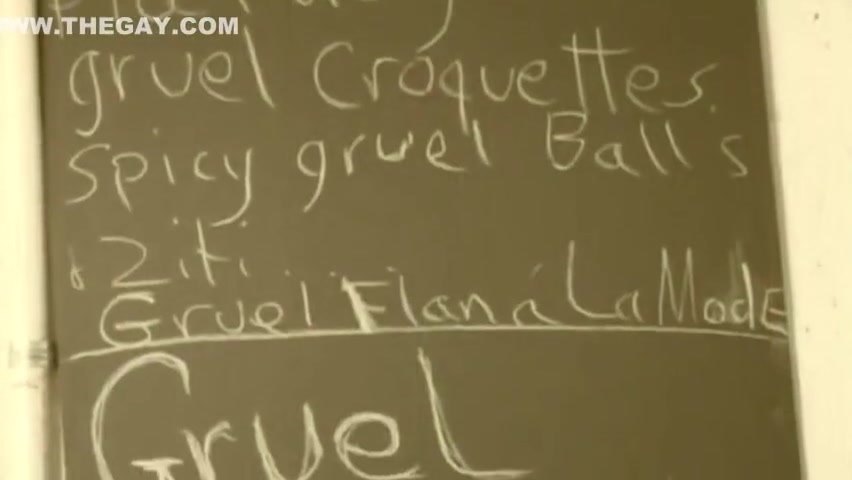 WWW.THEGAY.COM
gruel Croquettes.
spicy gruel Balls
Ziti...
Gruel Flan á La ModE
Gruel